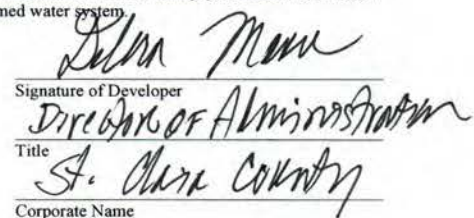 med water system.
Signature of Developer
Director OF Administration
Title
St. County
Corporate Name